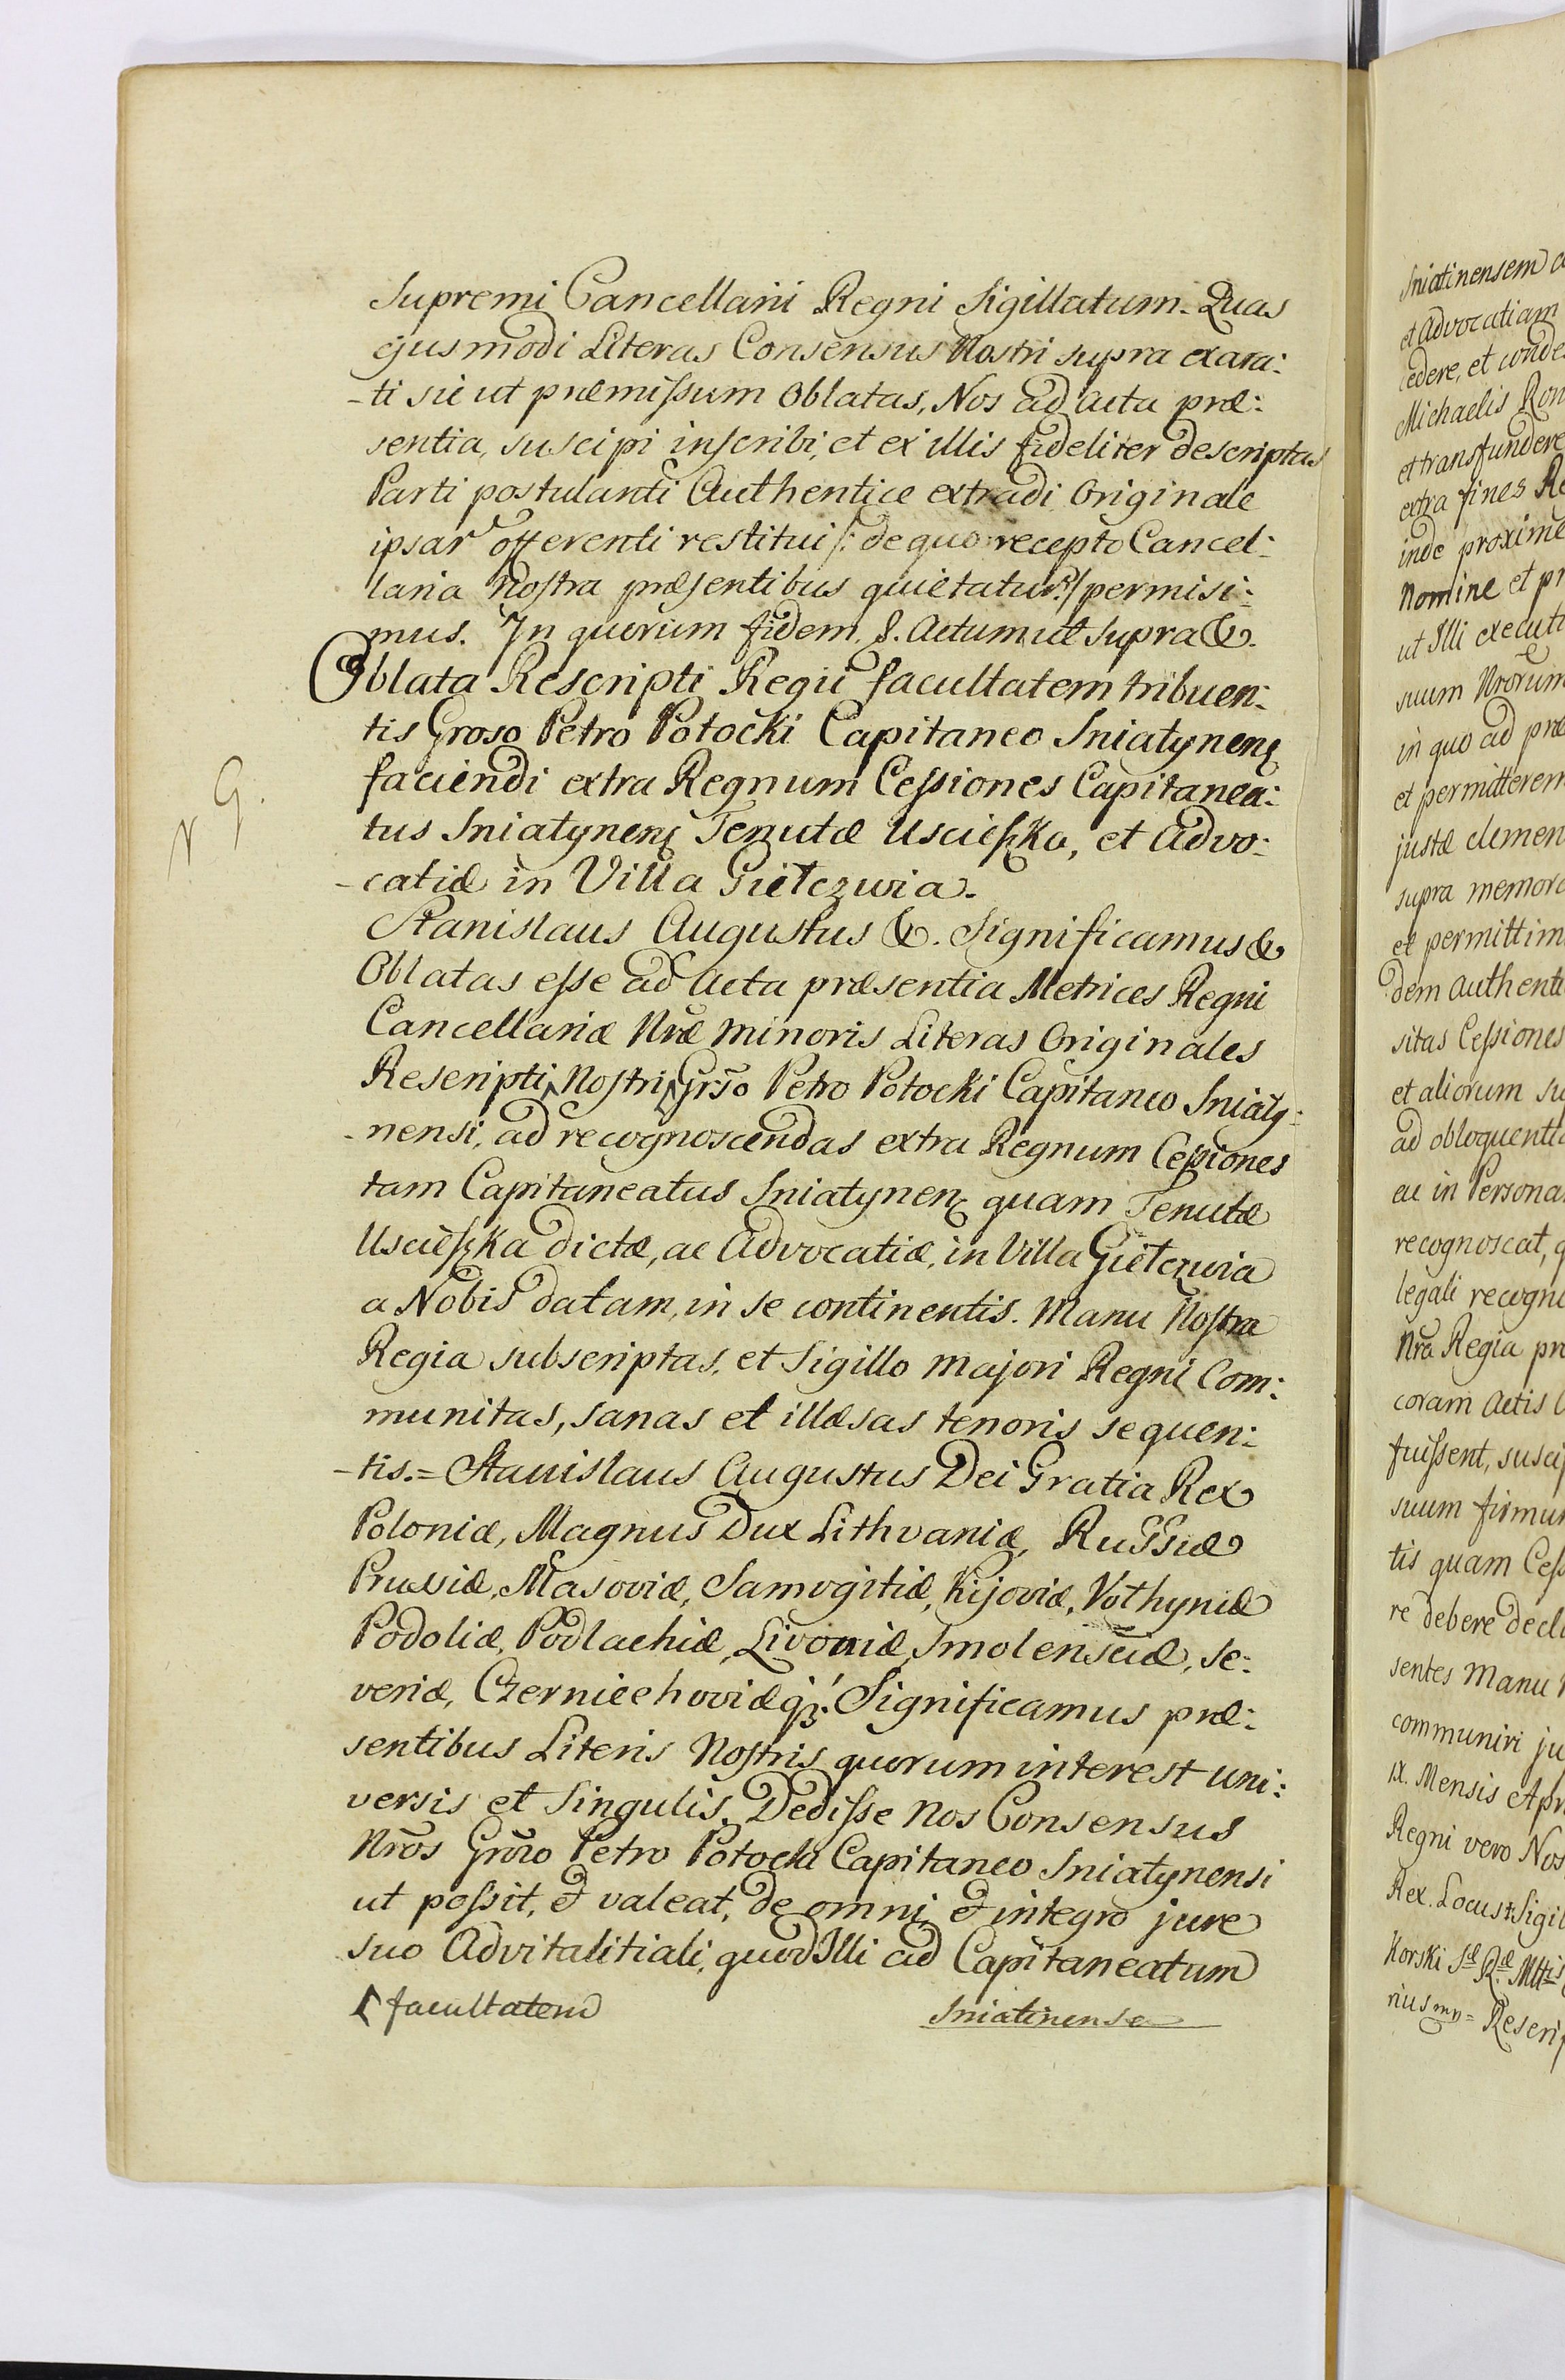 Supremi Cancellarii Regni Sigillatum. Quas
ejusmodi Literas Consensus Nostri supra exara:
-ti sic ut præmissum Oblatas, Nos ad Acta præ:
sentia, suscipi inscribi, et ex illis fideliter descriptas
Parti postulanti Authentice extradi Originale
ipsar offerenti restitui /: de quo recepto Cancel:
laria Nostra præsentibus quietatur :/ permisi:
mus. In quorum fidem &. Actum ut supra &.
Oblata Rescripti Regii facultatem tribuen:
tis Groso Petro Potocki Capitaneo Sniatynenξ
faciendi extra Regnum Cessiones Capitanea:
tus Sniatynenξ Tenutæ Uścieszka, et Advo:
-catiæ in Villa Giełczwia.
Stanislaus Augustus &. Significamus &
Oblatas esse ad Acta præsentia Metrices Regni
Cancellariæ Nræ Minoris Literas Originales
Rescripti Nostri Grso Petro Potocki Capitaneo Sniaty:
-nensi, ad recognoscendas extra Regnum Cessiones
tam Capitaneatus Sniatynenξ quam Tenutæ
Uścieszka dictæ, ac Advocatiæ, in Villa Giełczwia
a Nobis datam, in se continentis. Manu Nostra
Regia subscriptas, et Sigillo majori Regni Com:
munitas, sanas et illæsas tenoris sequen:
-tis.= Stanislaus Augustus Dei Gratia Rex
Poloniæ, Magnus Dux Lithvaniæ, Russiæ
Prussiæ, Masoviæ, Samogitiæ, Kijoviæ, Vołhyniæ
Podoliæ, Podlachiæ, Livoniæ, Smolensciæ, Se:
veriæ, Czerniechoviæq3. Significamus præ:
sentibus Literis Nostris quorum interest uni:
versis et Singulis. Dedisse Nos Consensus
Nros Grozo Petro Potocki Capitaneo Sniatynensi
ut possit, & valeat, de omni & integro jure
suo Advitalitiali, quod Illi ad Capitaneatum
facultatem
Sniatinense
G.
Sniatinensem
et Advocatiam
cedere, et conde
Michaelis Ron
et transfundere
extra fines Re
inde proxime
Nomine et pr
ut Illi executi
suum Nrorum
in quo ad præ
et permitterem
justæ clemen
supra memora
et permittim
dem authenti
sitas Cessiones
et aliorum su
ad obloquentia
in Persona
recognoscat, q
legali recogno
Nra Regia pr
coram Actis
fuissent, suscip
suum firmum
tis quam Cess
re debere decl
sentes Manu
communiri ju
IX. Mensis Apr
Regni vero Nos
Rex. Locus Sigil
Rescrip